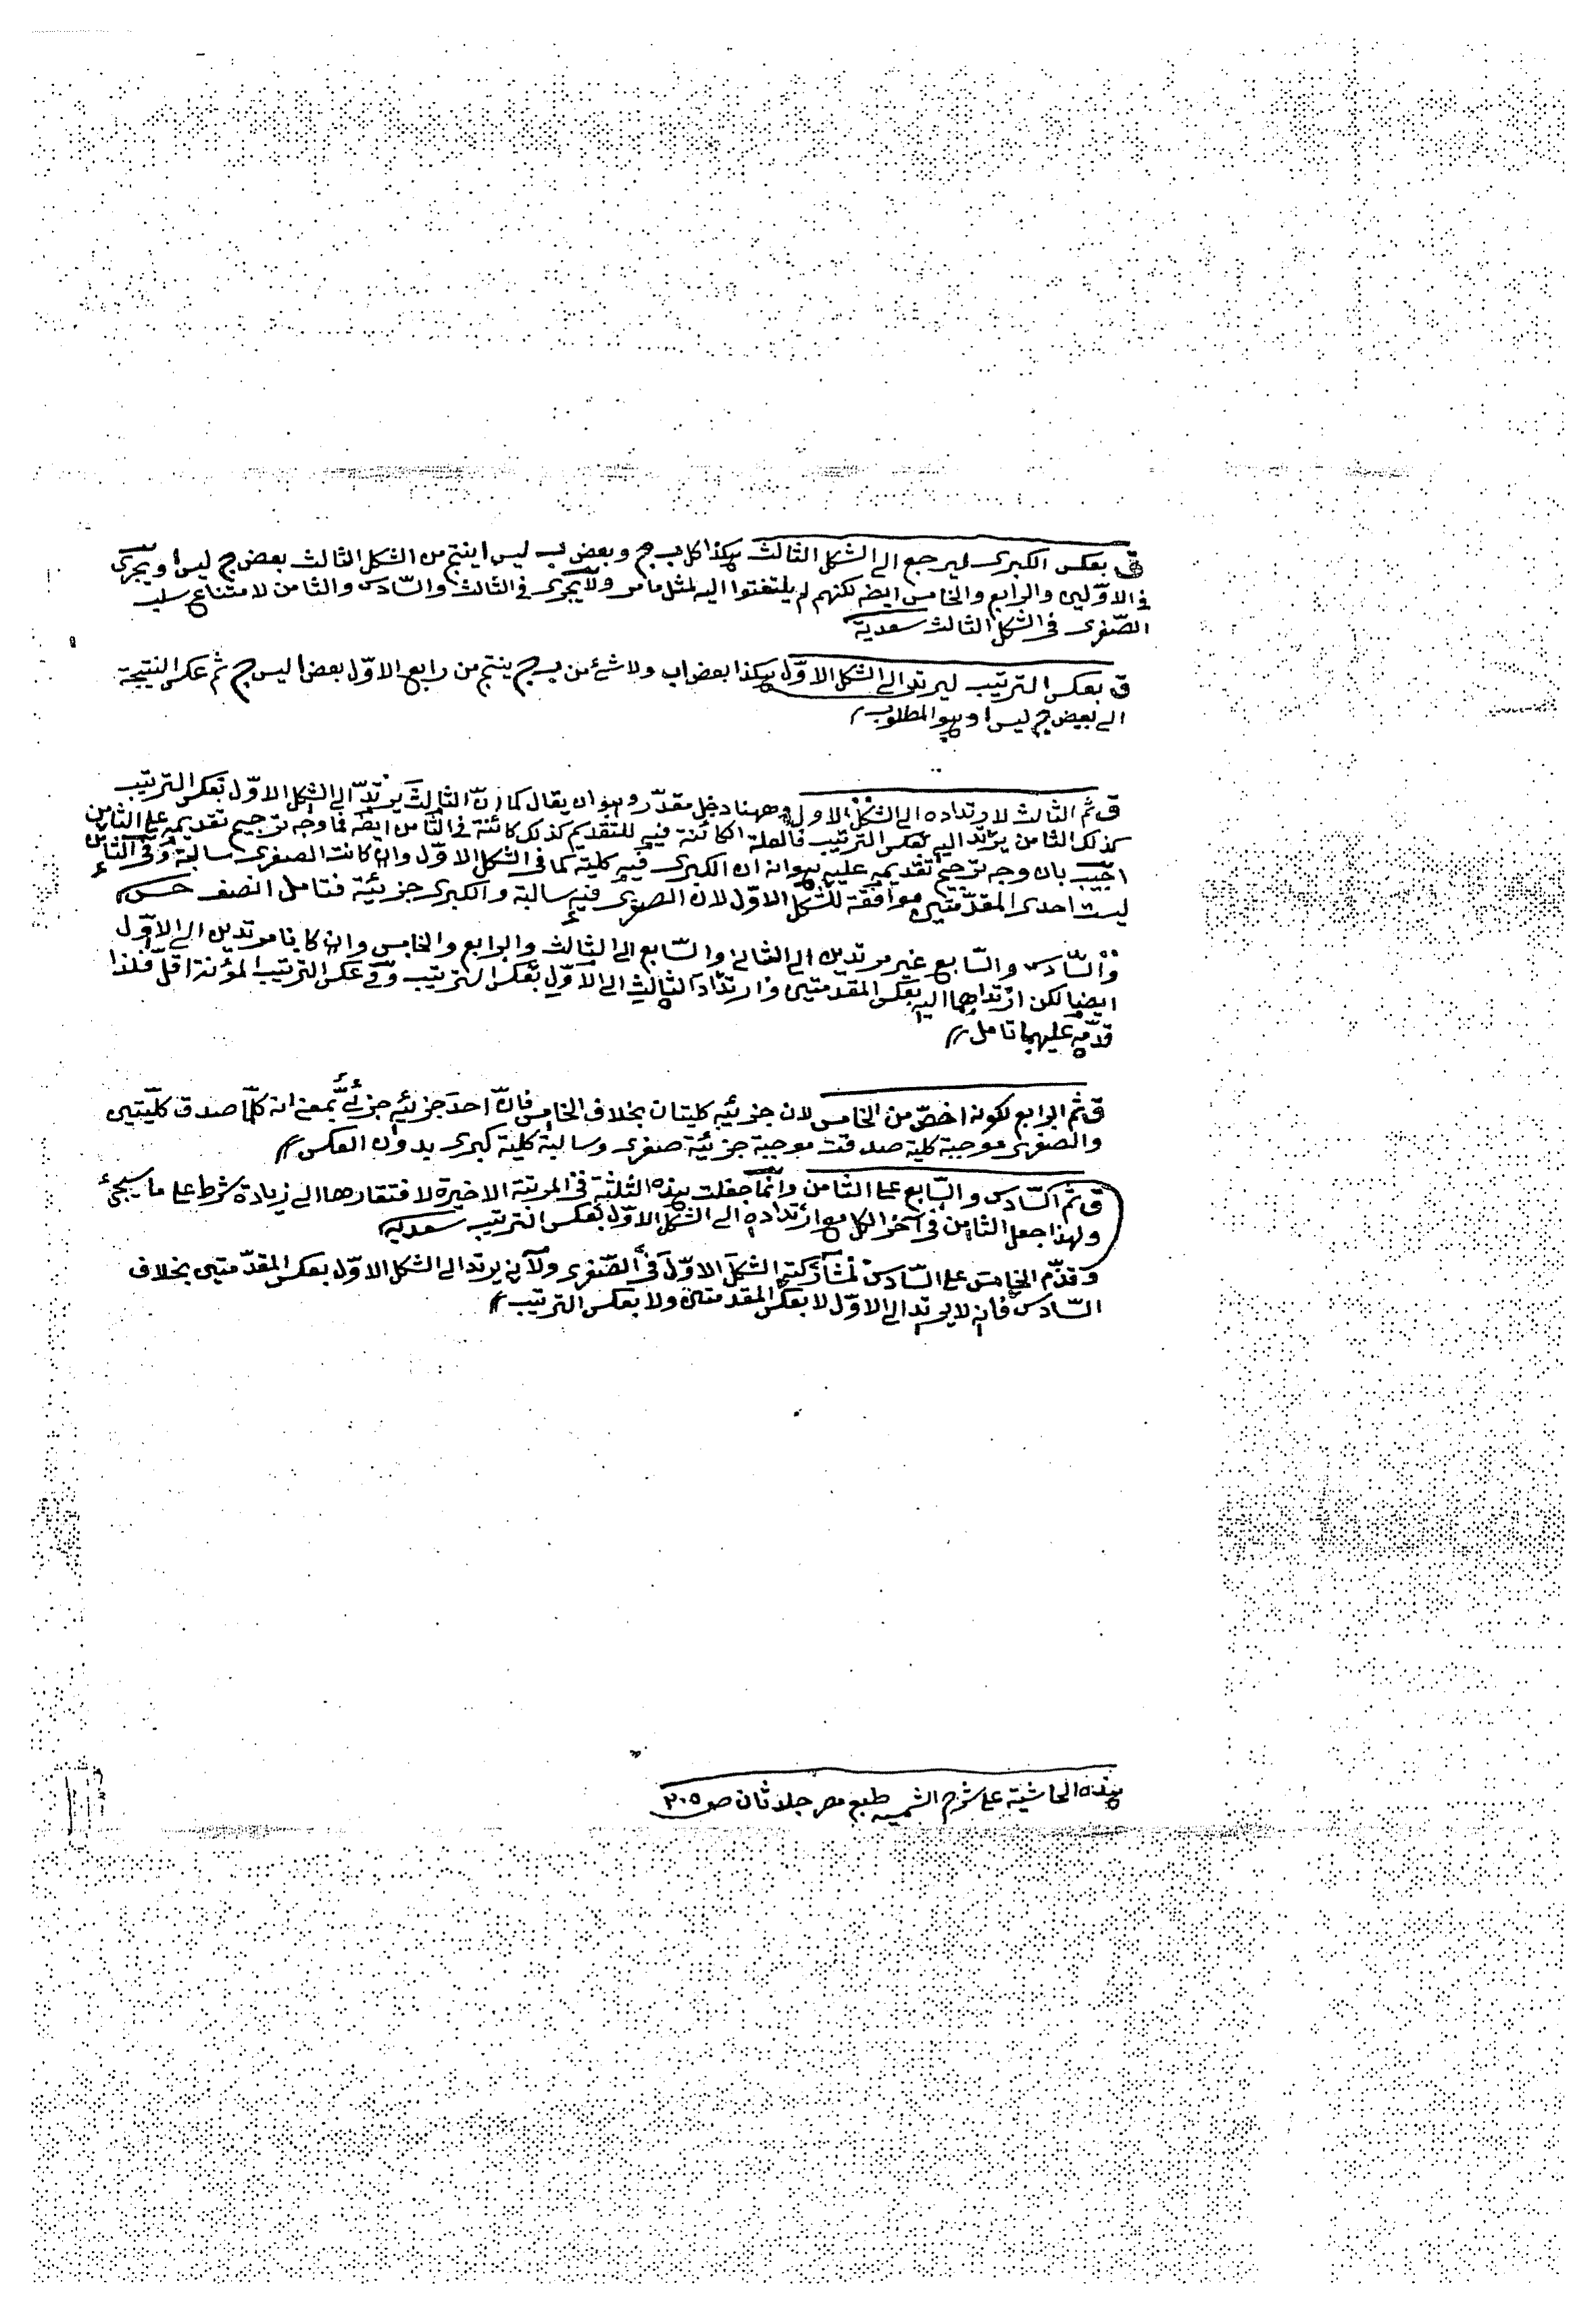 ق بعكس الكبرى ليرجع الى الشكل الثالث هكذا كل ب ج وبعض ب ليس ا ينتج من الشكل الثالث بعض ج ليس ا ويجرى
فى الاوّلين والرابع والخامس ايضه لكنهم لم يلتفتوا اليه لمثل ما مر ولا يجرى فى الثالث والسّادس والثامن لامتناع سلب
الصّغرى فى الشكل الثالث سعدية
ق بعكس الترتيب ليرتد الى الشكل الاوّل هكذا بعض اب ولا شئ من ب ج ينتج من رابع الاوّل بعض ا ليس ج ثم عكس النتيجة
الى بعض ج ليس ا وهو المطلوب
ق ثم الثالث لارتداده الى الشكل الاول وههنا دخل مقدّر وهو ان يقال كما انّ الثالث يرتدّ الى الشكل الاوّل بعكس الترتيب
كذلك الثامن يرتد اليه بعكس الترتيب فالعلة الكائنة فيه للتقديم كذلك كائنة فى الثامن ايضه فما وجه ترجيح تقديمه على الثامن
اجيب بان وجه ترجيح تقديمه عليه هو انه ان الكبرى فيه كلية كما فى الشكل الاوّل وان كانت الصغرى سالبة وفى الثامن
ليست احدى المقدّمتين موافقة للشكل الاوّل لان الصغرى فيه سالبة والكبرى جزئية فتامل انصف حسن
والسّادس والسّابع غير مرتدين الى الثانى والسّابع الى الثالث والرابع والخامس وان كانا مرتدين الى الاوّل
ايضا لكن ارتدادهما اليه بعكس المقدمتين وارتداد الثالث الى الاوّل بعكس الترتيب وفى عكس الترتيب المؤنة اقلّ فلذا
قدّمه عليهما تامل
ق ثم الرابع لكونه اخصّ من الخامس لان جزئيه كليتان بخلاف الخامس فانّ احد جزئيه جزئىّ بمعنى انه كلّما صدق كليّتين
والصغرى موجبة كلية صدقت موجبة جزئية صغرى وسالبة كلية كبرى بدون العكس
ق ثم السّادس والسّابع على الثامن وانّما جعلت هذه الثلثة فى المرتبة الاخيرة لافتقارها الى زيادة شرط على ما سيجئ
ولهذا جعل الثامن فى آخر الكل مع ارتداده الى الشكل الاوّل بعكس الترتيب سعديه
وقدّم الخامس على السّادس لمشاركته الشكل الاوّل فى الصّغرى ولانه يرتد الى الشكل الاوّل بعكس المقدّمتين بخلاف
السّادس فانه لا يرتد الى الاوّل لا بعكس المقدمتين ولا بعكس الترتيب
هذه الحاشية على شرح الشمسيه طبع مصر جلد ثان ص ٢٠٥